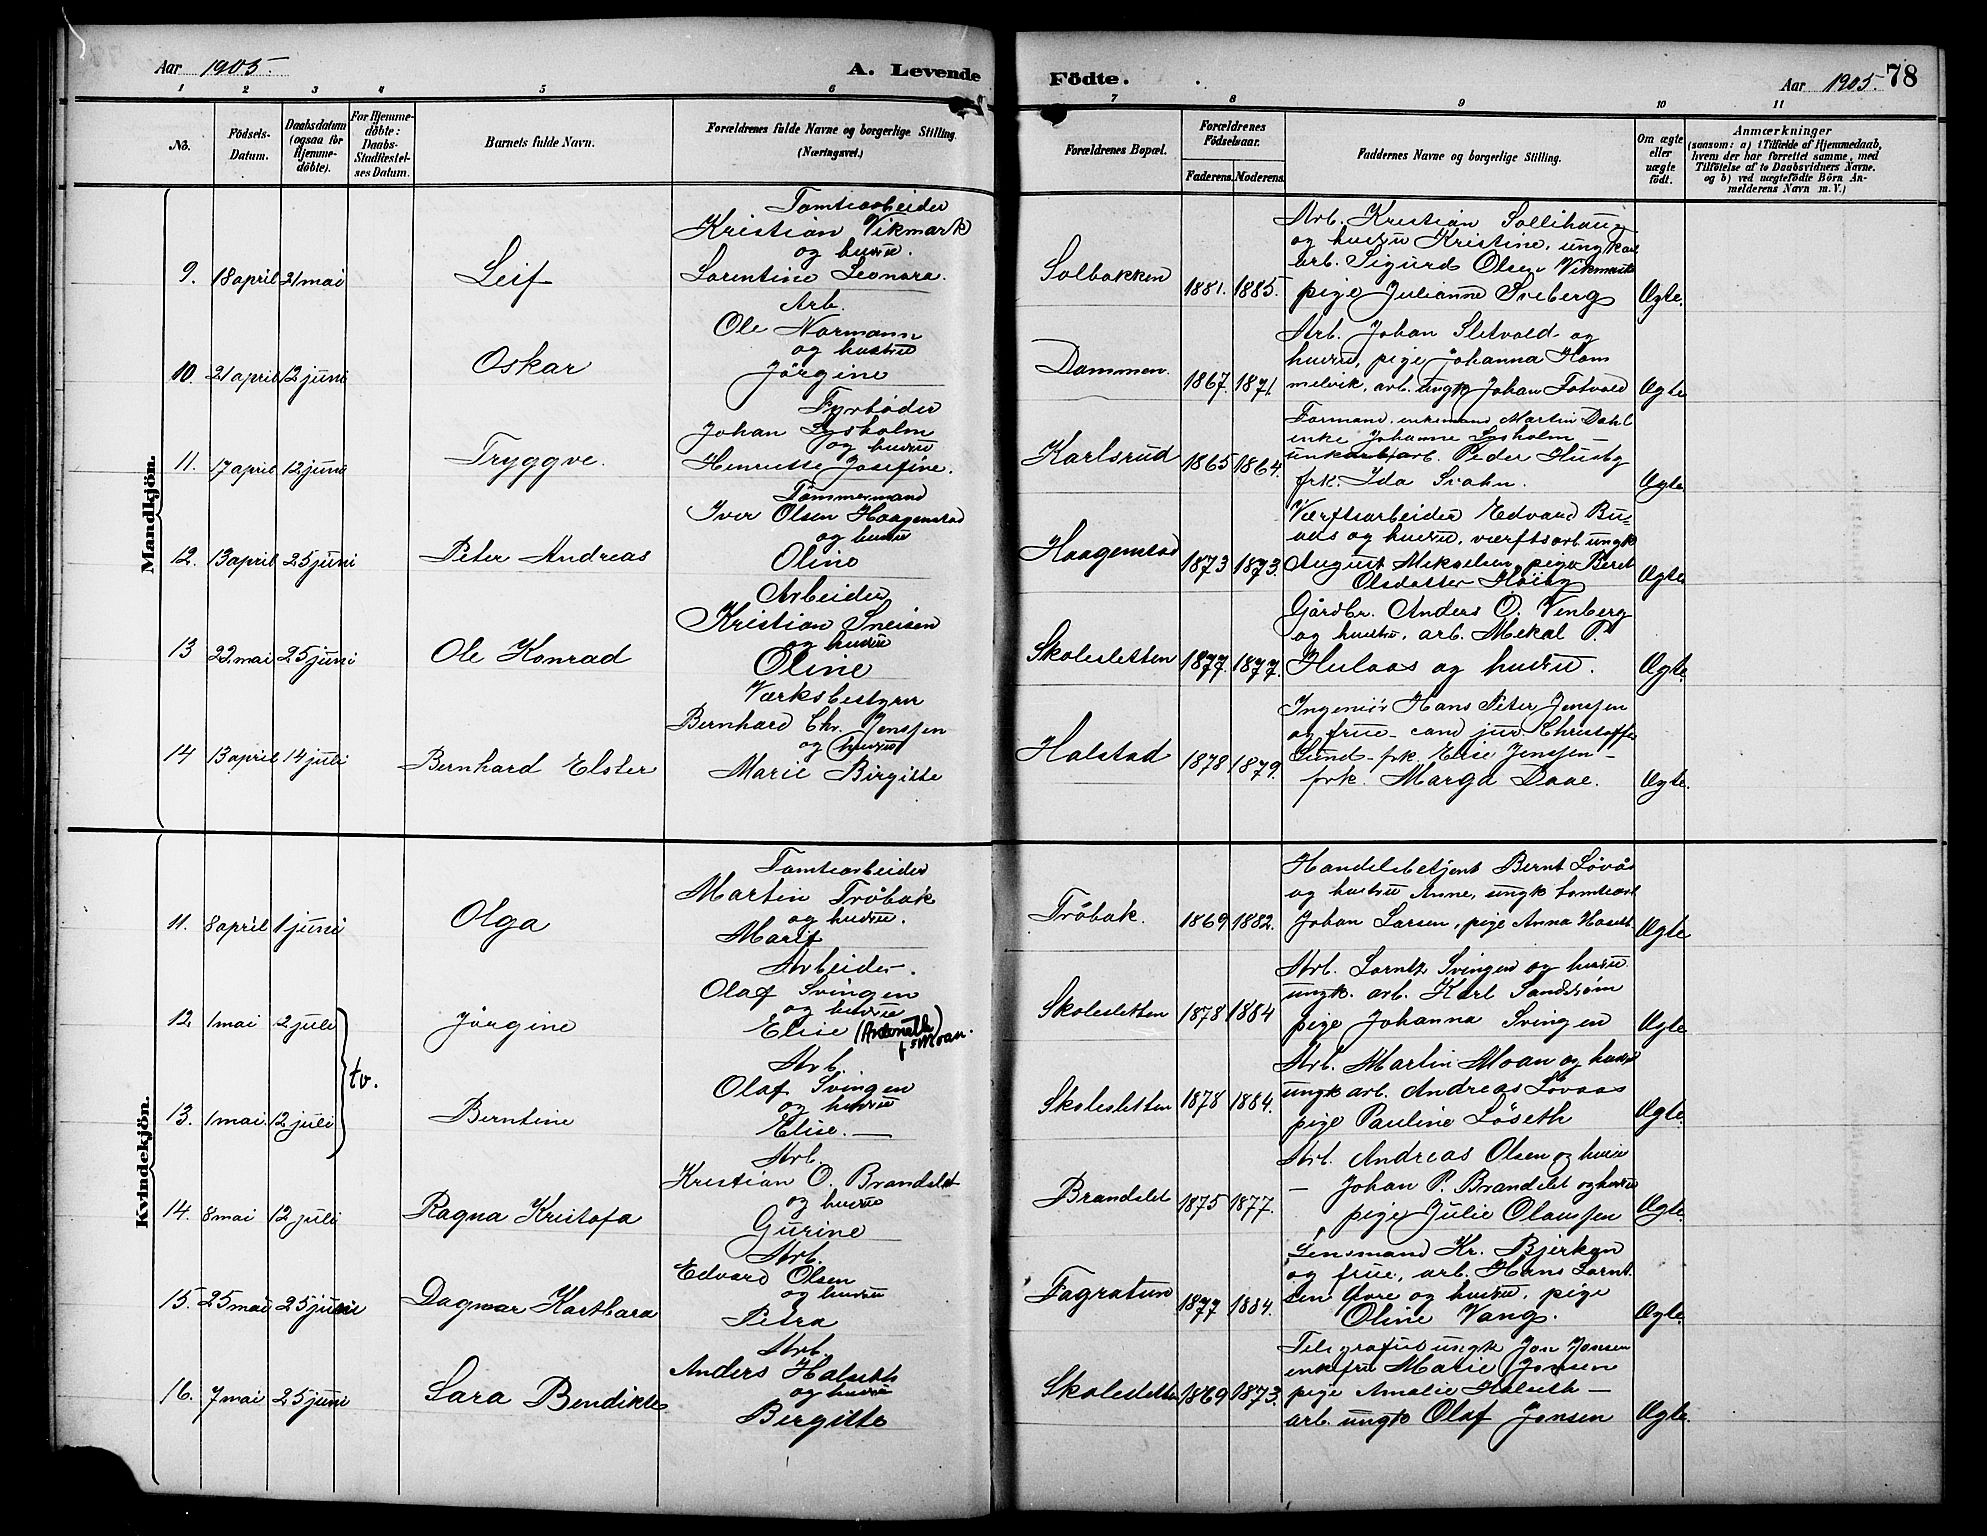 Aar 1905. A. Levende Födte. Aar 1905. 78
1 2 3 4 5 6 7 8 9 10 11
No. Födsels-Datum. Daabsdatum (ogsaa for Hjemmedöbte). For Hjemmedöbte: Daabs-Stadfestelses Datum. Barnets fulde Navn. Forældrenes fulde Navne og borgerlige Stilling. (Næringsvei.) Forældrenes Bopæl. Forældrenes Födselsaar. Faderens. Moderens. Faddernes Navne og borgerlige Stilling. Om ægte eller uægte födt. Anmærkninger
(saasom: a) i Tilfælde af Hjemmedaab, hvem der har forrettet samme, med Tilföielse af to Daabsvidners Navne. og b) ved uægtefödte Börn Anmelderens Navn m. V.)
Mandkjön.
Tomtearbeider
Kristian Vikmark
og hustru
9. 18 april 21 mai Leif Lorentine Leonora. Solbakken 1881. 1885.
Arb. Kristian Sollihaug
og hustru Kristine, ungkar
arb. Sigurd Olsen Vikmark
pige Julianne Sveberg Ægte.
Arb.
Ole Normann
og hustru
10. 21 april 12 juni Oskar Jörgine Dammen. 1867. 1871.
Arb. Johan Sletvold og
hustru, pige Johanna Hom
melvik, arb. ungk Johan Fotvold Ægte
Fyrböder
Johan Lysholm
og hustru
11. 17 april 12 juni Tryggve. Henriette Josefine. Karlsrud 1865 1864.
Formand, enkemand Martin Dahl
enke Johanne Lysholm –
unkarb arb. Peder Husby
frk. Ida Svahn. Ægte
Tömmermand
Iver Olsen Haagenstad
og hustru
12. 13 april 25 juni Peter Andreas Oline Haagenstad 1873 1873.
Værftsarbeider Edvard Bu=
aas og hustru, værftsarb. ungk
August Mikaelsen, pige Beret
Olsdatter Höiby Ægte
Arbeider
Kristian Sneisen
og hustru
13 22. mai 25 juni Ole Konrad Oline Skolesletten 1877. 1877.
Gårdbr. Anders O. Venberg
og hustru, arb. Mekal P.
Hulaas og hustru. Ægte.
Værksbestyrer
Bernhard Chr. Jenssen
og hustru
14 13 april 14 juli Bernhard Elster Marie Birgitte Halstad 1878 1879.
Ingeniör Hans Peter Jenssen
og frue – cand jur. Christoffer
Lund – frk. Elise Jenssen –
frk. Marga Daae. Ægte.
Kvindekjön.
Tomtearbeider
Martin Tröbak
og hustru.
11. 8 april 1 juni Olga Marit Tröbak. 1869 1882.
Handelsbetjent Bernt Lövås
og hustru Anne, ungk tomtearb
Johan Larsen, pige Anna Haseth Ægte
Arbeider.
Olaf Svingen
og hustru
12. 1 mai 2 juli Jörgine Elise (Antonette) f. Moan. Skolesletten 1878 1884
Arb. Lorntz Svingen og hustru
ungk. arb. Karl Sandström
pige Johanna Svingen Ægte
tv.
Arb.
Olaf Svingen
og hustru
13. 1 mai. 12 juli Berntine Elise. — Skolesletten 1878 1884.
Arb. Martin Moan og hustru
ungk arb. Andreas Lövaas
pige Pauline Löseth Ægte.
Arb.
Kristian O. Brandslet
og hustru
14. 8 mai 12 juli Ragna Kristofa Gurine Brandslet 1875 1877.
Arb. Andreas Olsen og hustru
— Johan P. Brandslet og hustru
pige Julie Olaussen Ægte.
Arb.
Edvard Olsen
og hustru
15. 25 mai 25 juni Dagmar Kathbara Petra Fagratun 1877 1884.
Lensmand Kr. Bjerkan
og frue, arb. Hans Lornt
sen Övre og hustru, pige
Oline Vang. Ægte.
Arb.
Anders Halseth
og hustru
16. 7 mai 25 juni Sara Bendikte Birgitte Skolesletten 1869 1873.
Telegrafist ungk Jon Jonsen
enkefru Marie Jonsen
pige Amalie Halseth –
arb. ungk Olaf Jonsen Ægte.